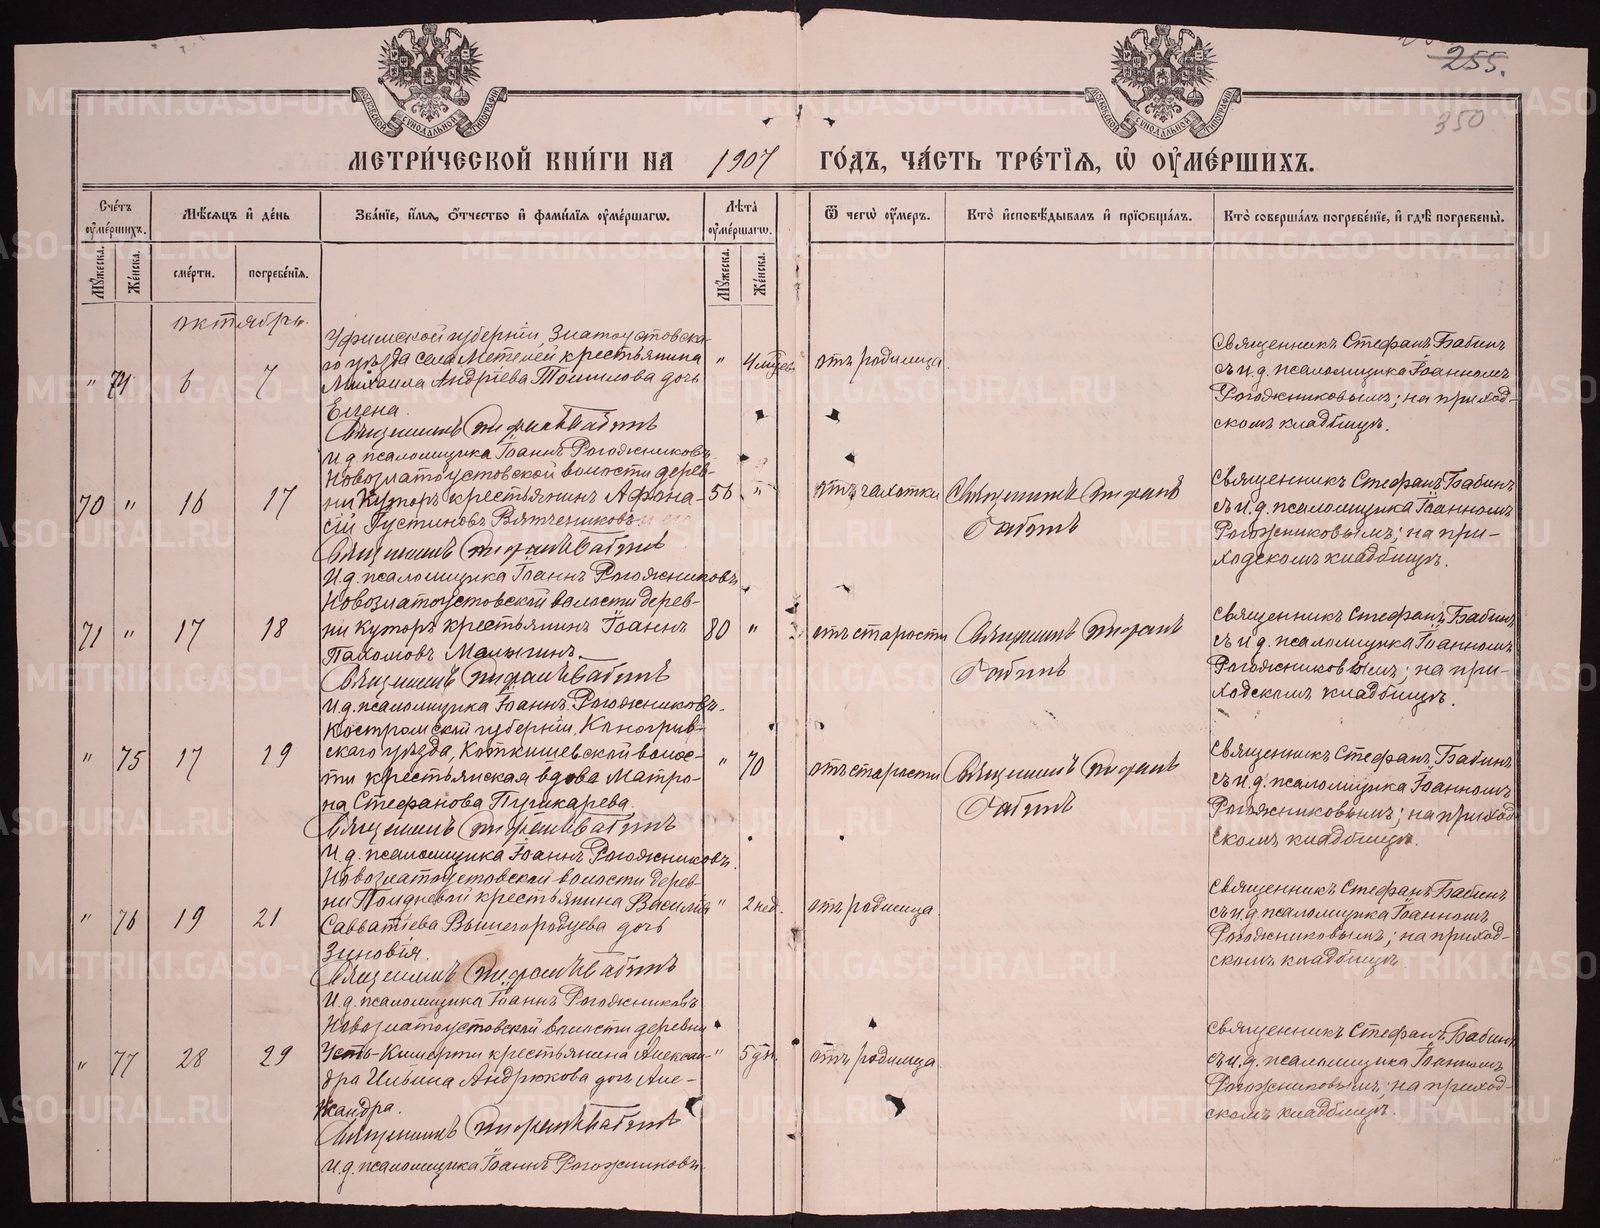 255.
350
МОСКОВСКОЙ СѴНОДАЛЬНОЙ ТИПОГРАФІИ
МОСКОВСКОЙ СѴНОДАЛЬНОЙ ТИПОГРАФІИ
МЕТРИ́ЧЕСКОЙ КНИ́ГИ НА 1907 ГО́ДЪ, ЧА́СТЬ ТРЕ́ТІЯ, Ѽ ОУ҆МЕ́РШИХЪ.
Сче́тъ оу҆ме́ршихъ.
Мꙋ́жеска.
Же́нска.
Мѣ́сяцъ и҆ де́нь
сме́рти.
погребе́нія.
Зва́ніе, и҆́мя, ѻ҆́тчество и҆ фами́лія оу҆ме́ршагѡ.
Лѣта̀ оу҆ме́ршагѡ.
Мꙋ́жеска.
Же́нска.
Ѿ чегѡ̀ оу҆́меръ.
Кто̀ и҆сповѣ́дывалъ и҆ прїѡбща́лъ.
Кто̀ соверша́лъ погребе́ніе, и҆ гдѣ̀ погребены̀.
октябрь.
" 74 6 7
Уфимской губерніи, Златоустовска-
го уѣзда села Метелей крестьянина
Михаила Андріева Томилова дочь
Елена.
Священникъ Стефанъ Бабинъ
И.д. псаломщика Іоаннъ Рогожниковъ.
" 4 мѣсяц.
отъ родимца.
Священникъ Стефанъ Бабинъ
съ и.д. псаломщика Іоанномъ
Рогожниковымъ; на приход-
скомъ кладбищѣ.
70 " 16 17
Новозлатоустовской волости дерев-
ни Куторъ крестьянинъ Афана-
сій Густиновъ Вятчениковъ
Священникъ Стефанъ Бабинъ
И.д. псаломщика Іоаннъ Рогожниковъ
56 "
отъ чахотки
Священникъ Стефанъ
Бабинъ
Священникъ Стефанъ Бабинъ
съ и.д. псаломщика Іоанномъ
Рогожниковымъ; на при-
ходскомъ кладбищѣ.
71 " 17 18
Новозлатоустовской волости дерев-
ни Куторъ крестьянинъ Іоаннъ
Пахомовъ Малыгинъ.
Священникъ Стефанъ Бабинъ
И.д. псаломщика Іоаннъ Рогожниковъ.
80 "
отъ старости
Священникъ Стефанъ
Бабинъ
Священникъ Стефанъ Бабинъ
съ и.д. псаломщика Іоанномъ
Рогожниковымъ; на при-
ходскомъ кладбищѣ.
" 75 17 19
Костромской губерніи, Кологрив-
скаго уѣзда, Коткишевской волос-
ти крестьянская вдова Матро-
на Стефанова Пушкарева.
Священникъ Стефанъ Бабинъ
И.д. псаломщика Іоаннъ Рогожниковъ.
" 70
отъ старости
Священникъ Стефанъ
Бабинъ
Священникъ Стефанъ Бабинъ
съ и.д. псаломщика Іоанномъ
Рогожниковымъ; на приход-
скомъ кладбищѣ.
" 76 19 21
Новозлатоустовской волости дерев-
ни Полдневой крестьянина Василія
Савватіева Вышегородцева дочь
Зиновія.
Священникъ Стефанъ Бабинъ
И.д. псаломщика Іоаннъ Рогожниковъ
" 2 нед.
отъ родимца.
Священникъ Стефанъ Бабинъ
съ и.д. псаломщика Іоанномъ
Рогожниковымъ; на приход-
скомъ кладбищѣ.
" 77 28 29
Новозлатоустовской волости деревни
Усть-Кишерти крестьянина Алексан-
дра Ильина Андрюкова дочь Але-
ксандра.
Священникъ Стефанъ Бабинъ
И.д. псаломщика Іоаннъ Рогожниковъ.
" 5 дн.
отъ родимца
Священникъ Стефанъ Бабинъ
съ и.д. псаломщика Іоанномъ
Рогожниковымъ; на приход-
скомъ кладбищѣ.
METRIKI.GASO-URAL.RU